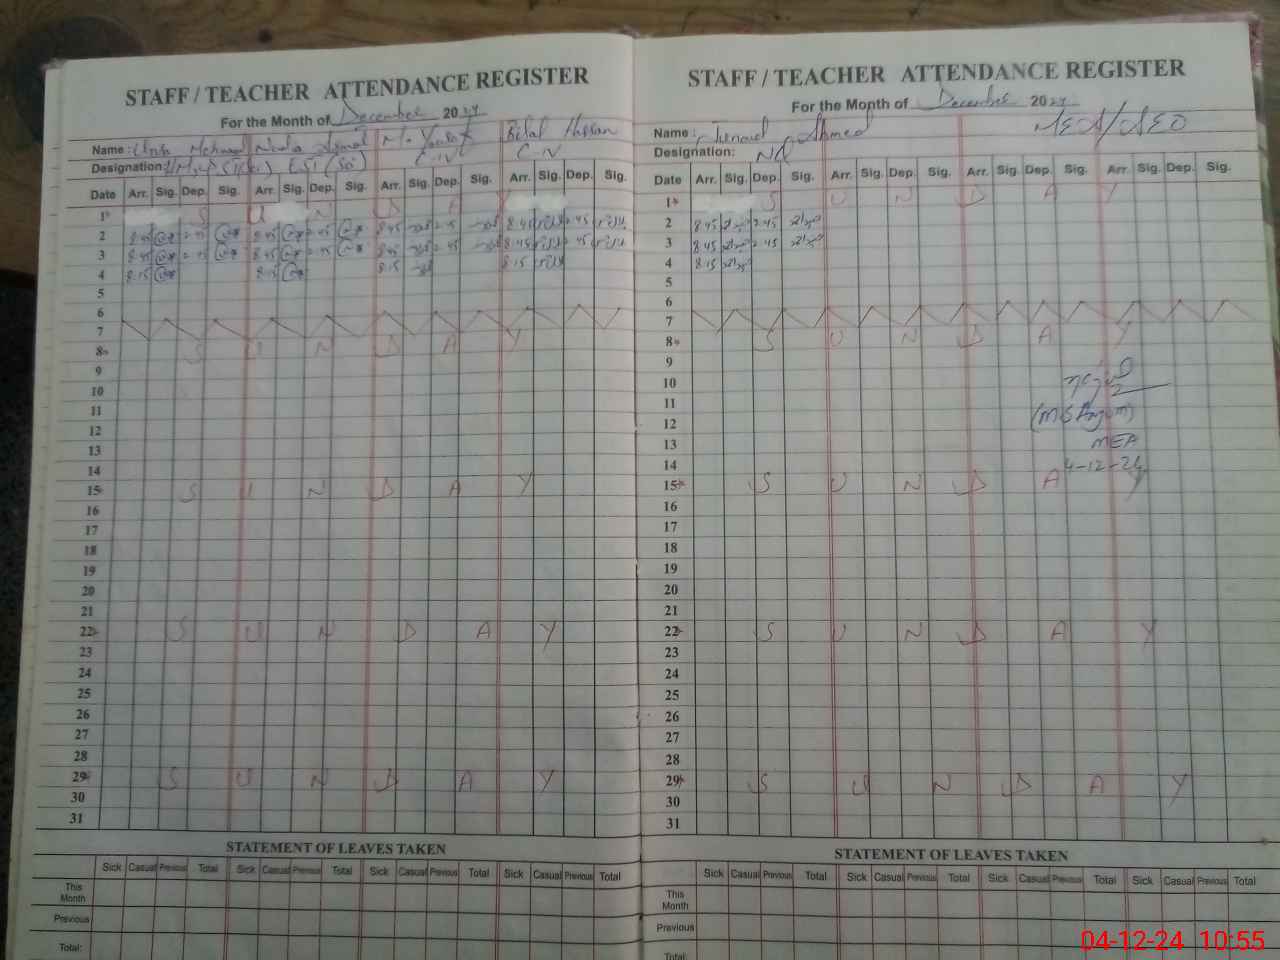 STAFF / TEACHER ATTENDANCE REGISTER
For the Month of December 2024
Name :
Designation: C-IV C-IV
Date Arr. Sig. Dep. Sig. Arr. Sig. Dep. Sig. Arr. Sig. Dep. Sig. Arr. Sig. Dep. Sig.
1 S U N D
2 8.45 2.45 8.45 2.45 8.45 2.45 8.45 2.45
3 8.45 2.45 8.45 2.45 8.45 2.45 8.45 2.45
4 8.15 8.15 8.15 8.15
5
6
7
8 S U N D A Y
9
10
11
12
13
14
15 S U N D A Y
16
17
18
19
20
21
22 S U N D A Y
23
24
25
26
27
28
29 S U N D A Y
30
31
STATEMENT OF LEAVES TAKEN
Sick Casual Previous Total Sick Casual Previous Total Sick Casual Previous Total Sick Casual Previous Total
This Month
Previous
Total:
STAFF / TEACHER ATTENDANCE REGISTER
For the Month of December 2024
Name : Junaid Ahmed MEA/AEO
Designation: NQ
Date Arr. Sig. Dep. Sig. Arr. Sig. Dep. Sig. Arr. Sig. Dep. Sig. Arr. Sig. Dep. Sig.
1 S U N D A Y
2 8.45 2.45
3 8.45 2.45
4 8.15
5
6
7
8 S U N D A Y
9
10
11
12 (M S Anjum)
13 MEA
14 4-12-24
15 S U N D A Y
16
17
18
19
20
21
22 S U N D A Y
23
24
25
26
27
28
29 S U N D A Y
30
31
STATEMENT OF LEAVES TAKEN
Sick Casual Previous Total Sick Casual Previous Total Sick Casual Previous Total Sick Casual Previous Total
This Month
Previous
Total:
04-12-24 10:55